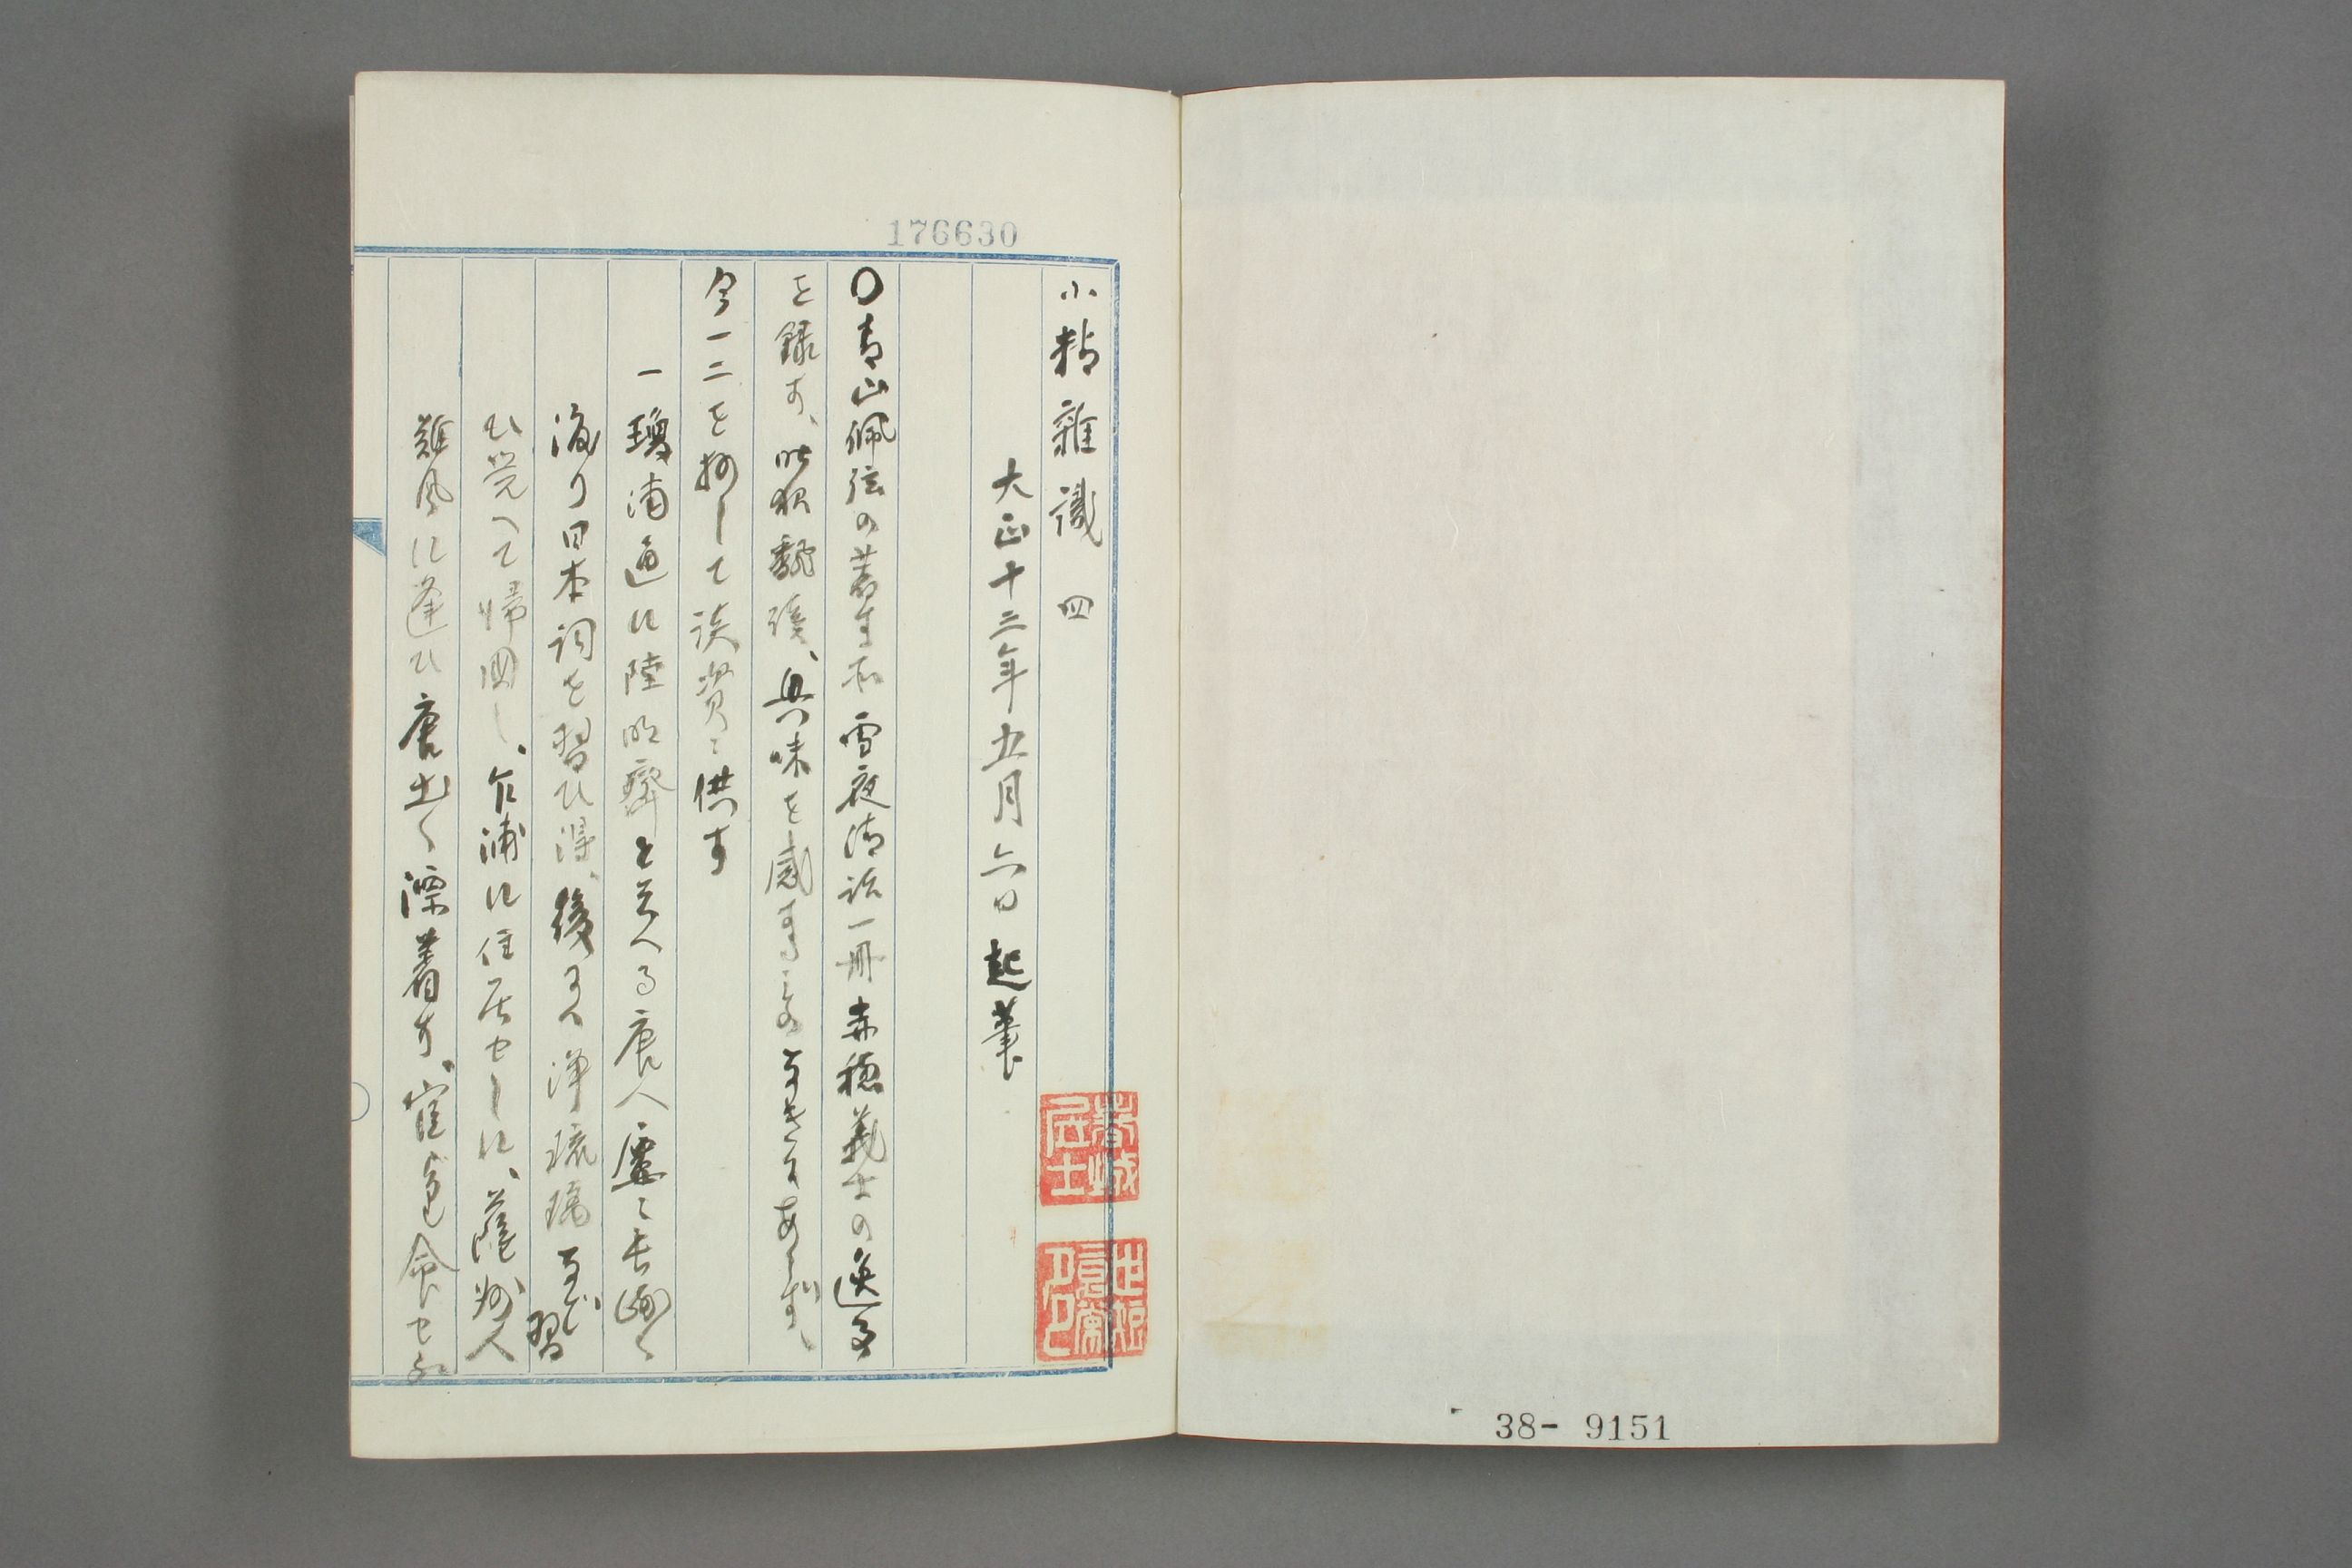 小精雑識 四
大正十三年五月六日 起筆
〇青山佩弦の著す所雪夜清話一冊赤穂義士の逸事
を録す、此秋翻読、興味を感ずるものなきにあらず、
今一二を抄して談資ニ供す
一瓊浦通に陸明齋と云へる唐人屡々長崎へ
渡り日本詞を習ひ得、後には浄瑠璃など習
ひ覚へて帰国し、乍浦に住居せしに、薩州人
難風に逢ひ唐土へ漂着す、官より命せられ
春城居士
176630
38- 9151